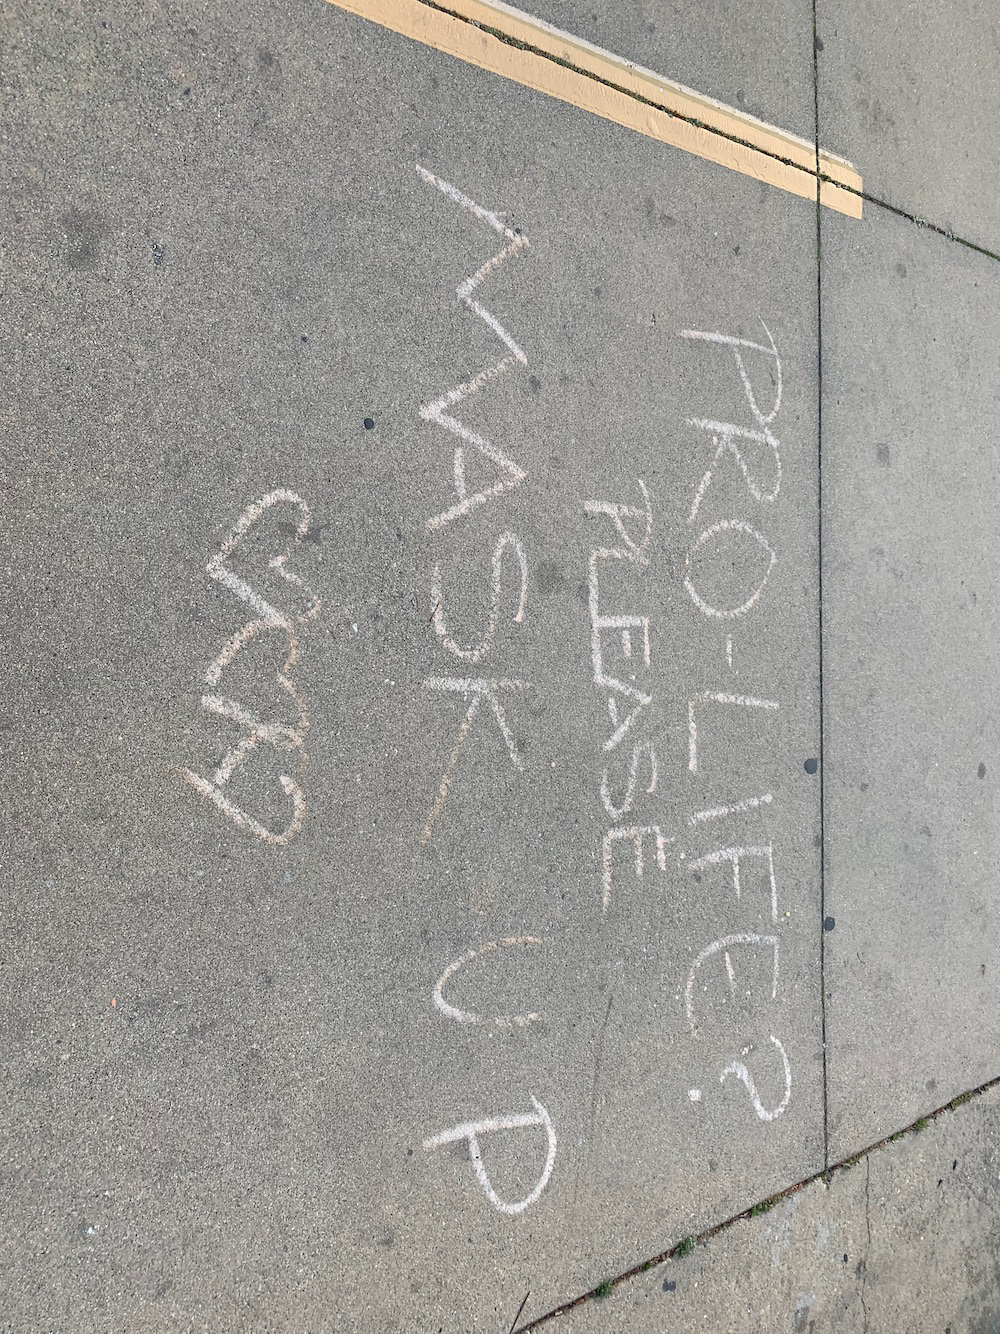 PRO-LIFE?
PLEASE
MASK UP